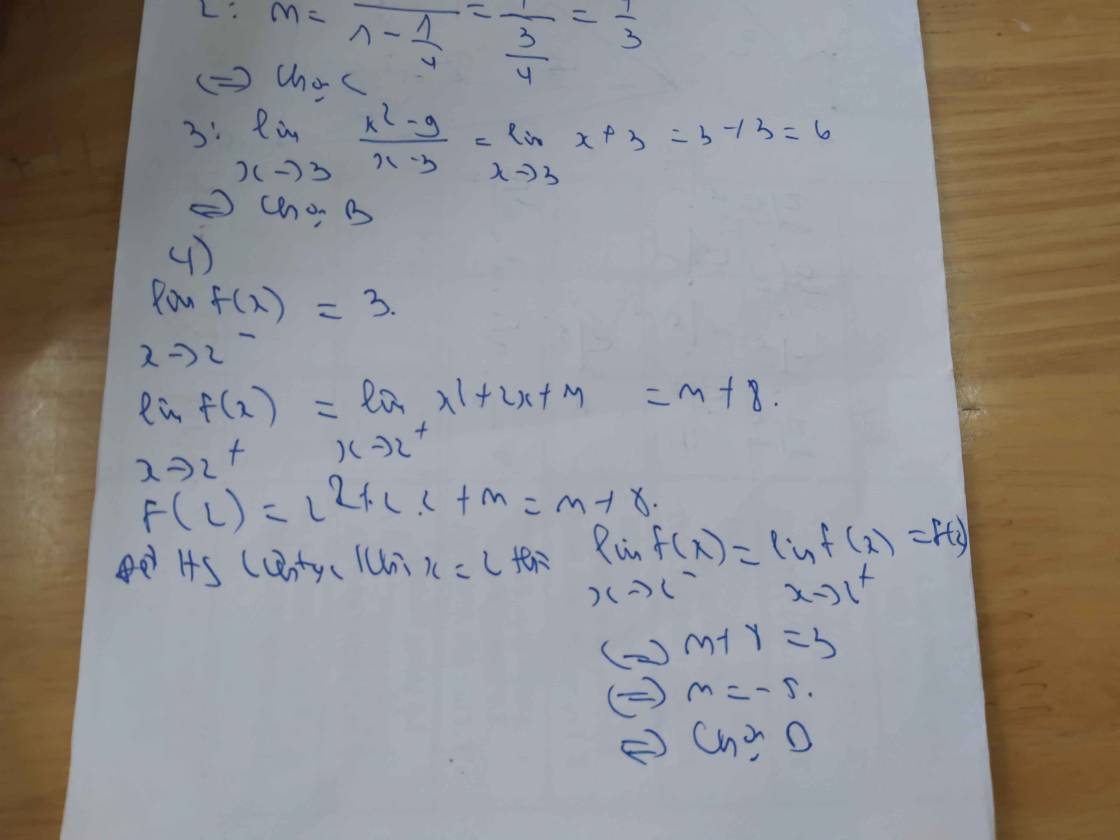 2: M = 1/(1 - 1/4) = 1/(3/4) = 1/3
(=) Chọn C
3: lim x->3 (x² - 9)/(x - 3) = lim x->3 x + 3 = 3 + 3 = 6
(=) Chọn B
4)
lim f(x) = 3.
x->2⁻
lim f(x) = lim x² + 2x + m = m + 8.
x->2⁺ x->2⁺
f(2) = 2² + 2.2 + m = m + 8.
Để HS liên tục khi x = 2 thì lim f(x) = lim f(x) = f(2)
x->2⁻ x->2⁺
(=) m + 8 = 3
(=) m = -5.
(=) Chọn D